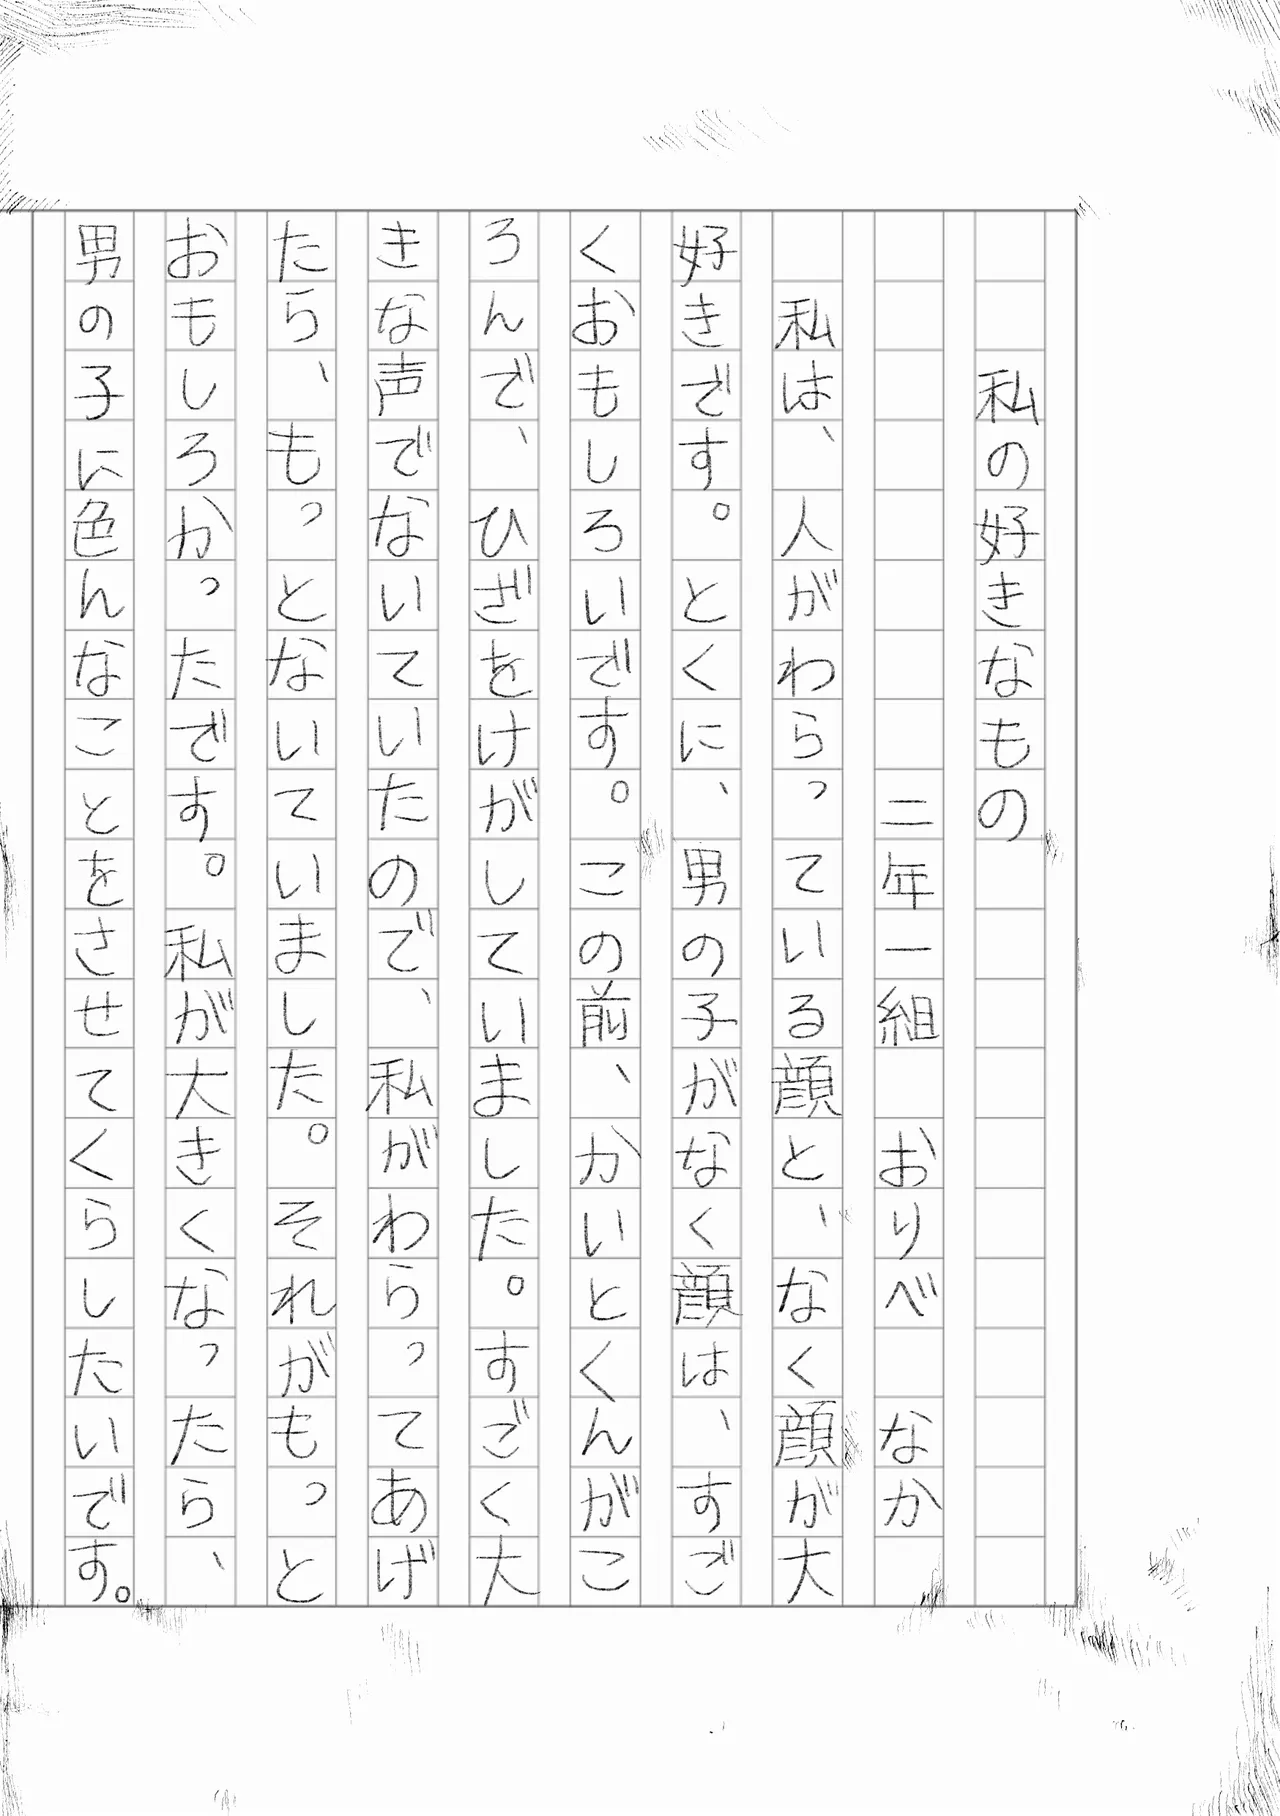 私の好きなもの
二年一組　おりべ　なか
私は、人がわらっている顔と、なく顔が大
好きです。とくに、男の子がなく顔は、すご
くおもしろいです。この前、かいとくんがこ
ろんで、ひざをけがしていました。すごく大
きな声でないていたので、私がわらってあげ
たら、もっとないていました。それがもっと
おもしろかったです。私が大きくなったら、
男の子に色んなことをさせてくらしたいです。